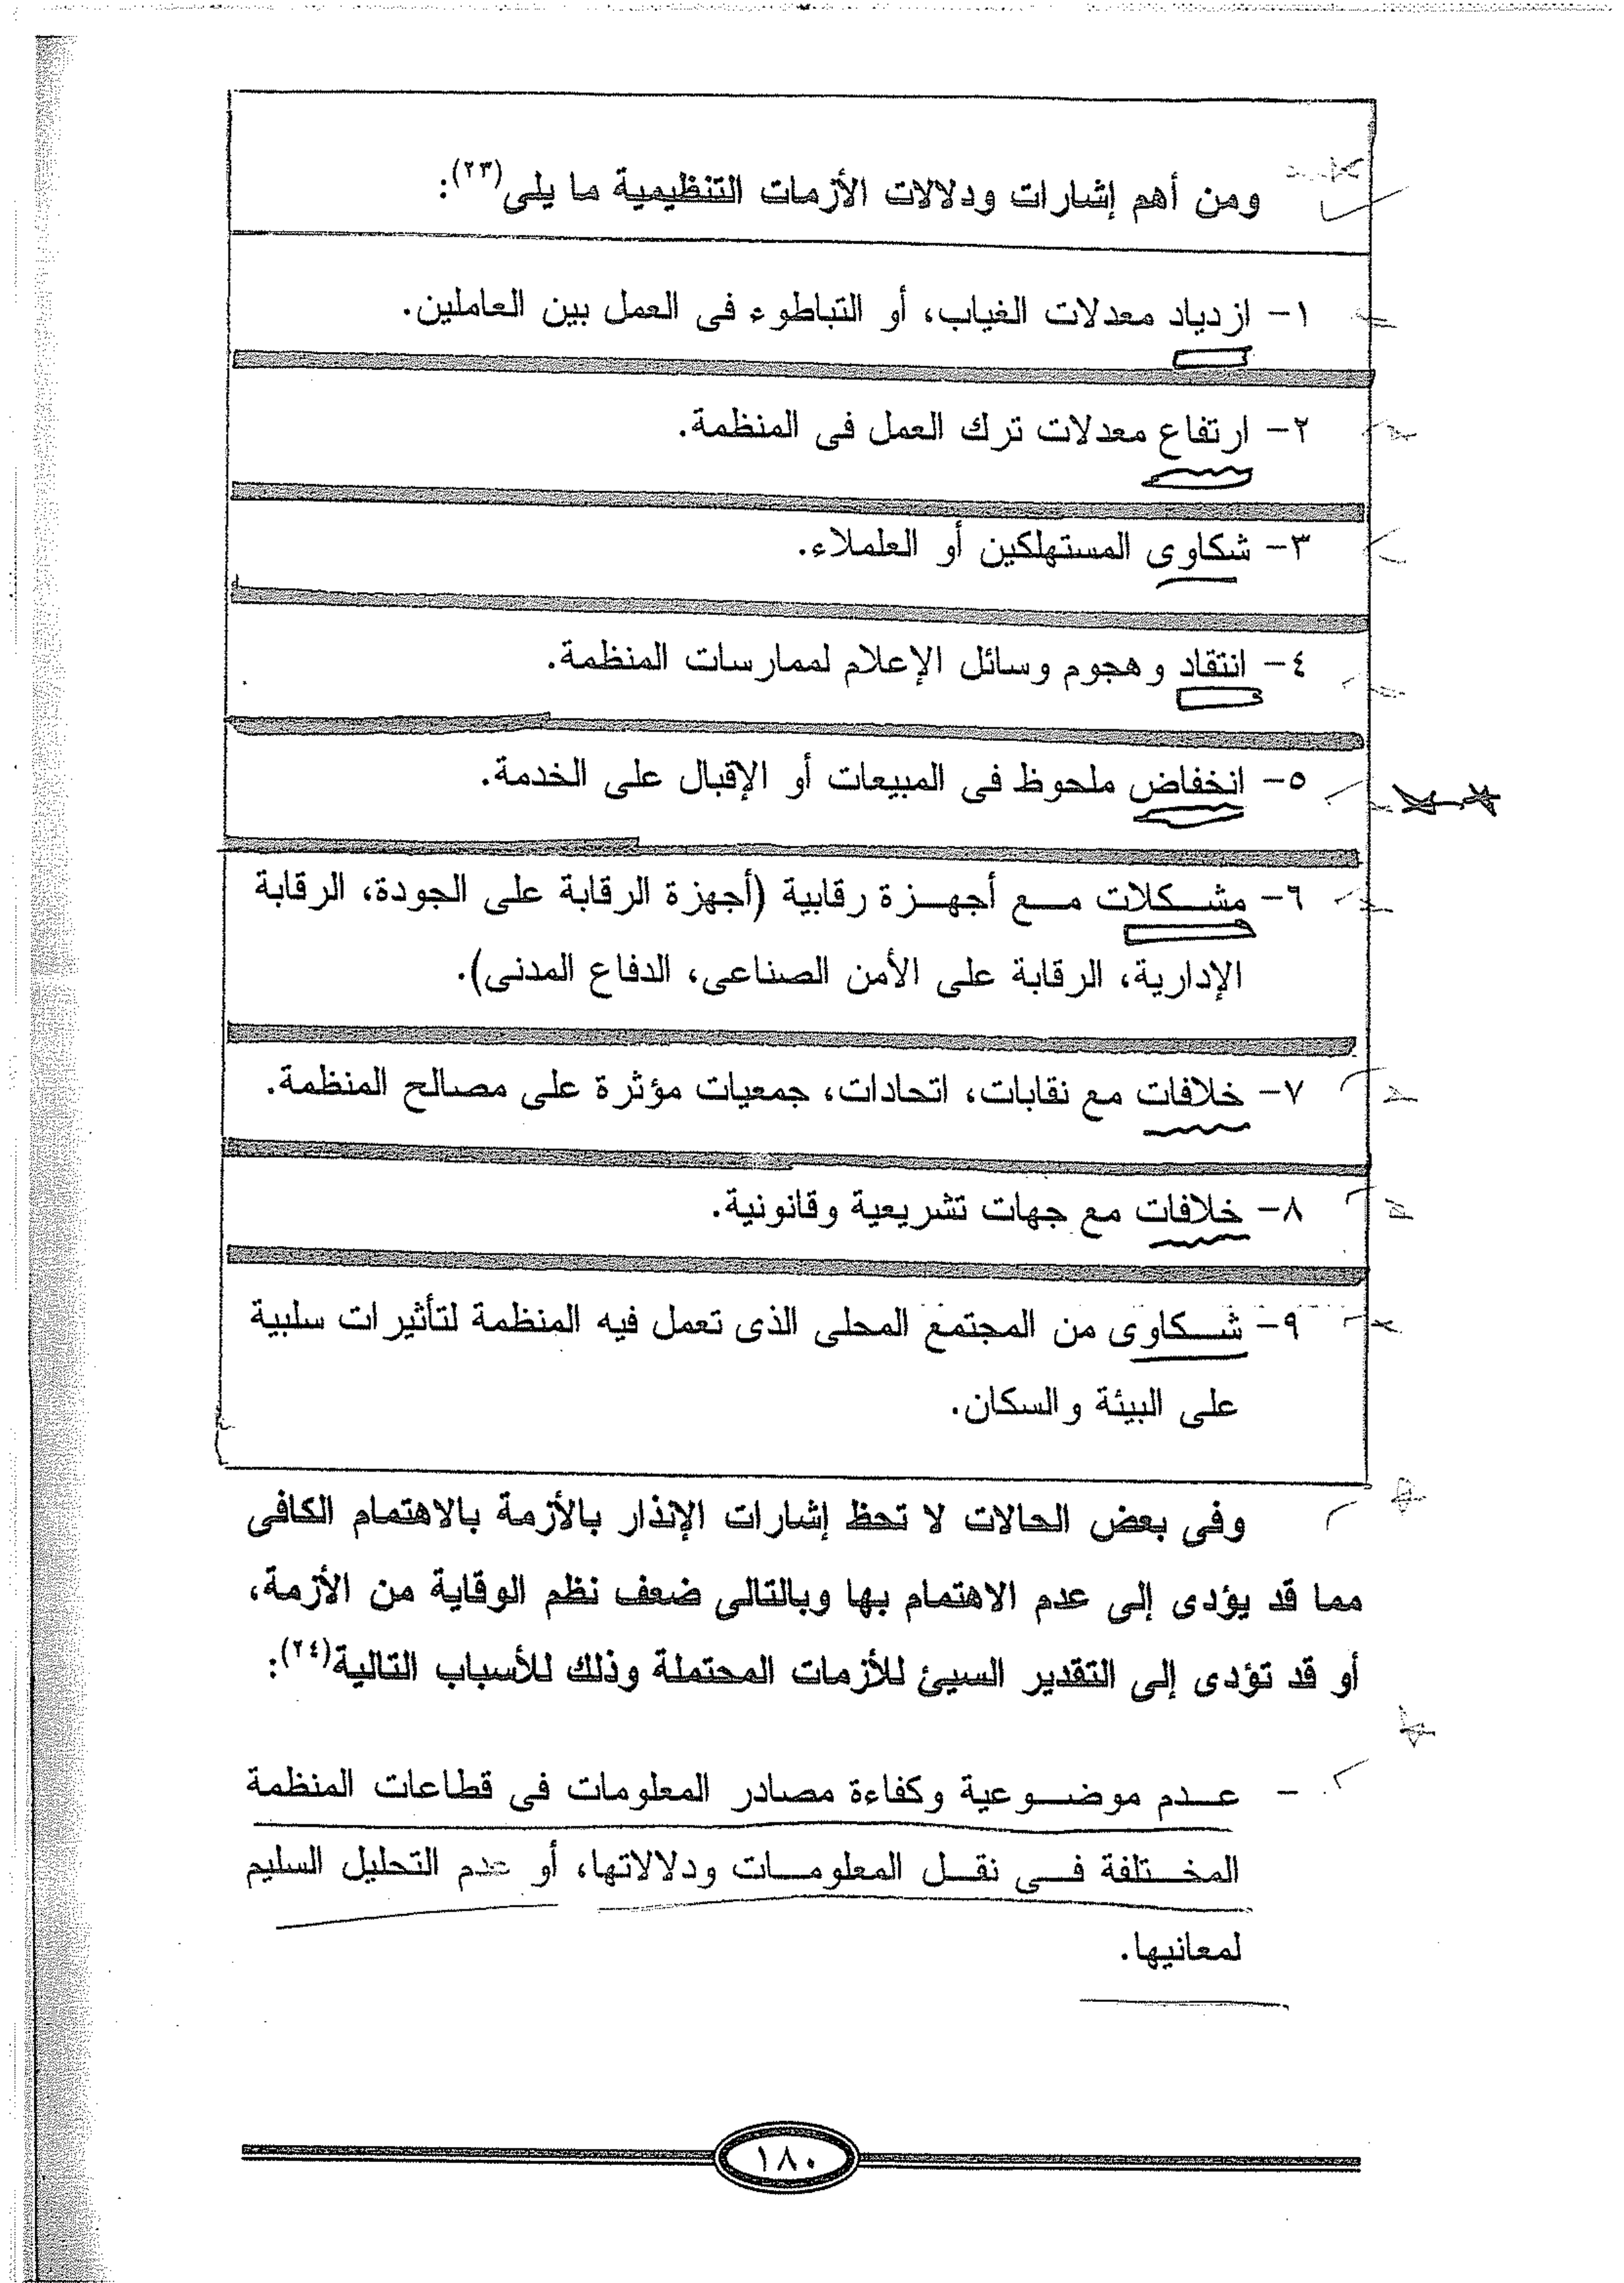 ومن أهم إشارات ودلالات الأزمات التنظيمية ما يلى(٢٣):
١- ازدياد معدلات الغياب، أو التباطوء فى العمل بين العاملين.
٢- ارتفاع معدلات ترك العمل فى المنظمة.
٣- شكاوى المستهلكين أو العلملاء.
٤- انتقاد وهجوم وسائل الإعلام لممارسات المنظمة.
٥- انخفاض ملحوظ فى المبيعات أو الإقبال على الخدمة.
٦- مشـكلات مـع أجهـزة رقابية (أجهزة الرقابة على الجودة، الرقابة
الإدارية، الرقابة على الأمن الصناعى، الدفاع المدنى).
٧- خلافات مع نقابات، اتحادات، جمعيات مؤثرة على مصالح المنظمة.
٨- خلافات مع جهات تشريعية وقانونية.
٩- شـكاوى من المجتمع المحلى الذى تعمل فيه المنظمة لتأثيرات سلبية
على البيئة والسكان.
وفى بعض الحالات لا تحظ إشارات الإنذار بالأزمة بالاهتمام الكافى
مما قد يؤدى إلى عدم الاهتمام بها وبالتالى ضعف نظم الوقاية من الأزمة،
أو قد تؤدى إلى التقدير السيئ للأزمات المحتملة وذلك للأسباب التالية(٢٤):
- عـدم موضـوعية وكفاءة مصادر المعلومات فى قطاعات المنظمة
المخـتلفة فـى نقـل المعلومـات ودلالاتها، أو عدم التحليل السليم
لمعانيها.
١٨٠